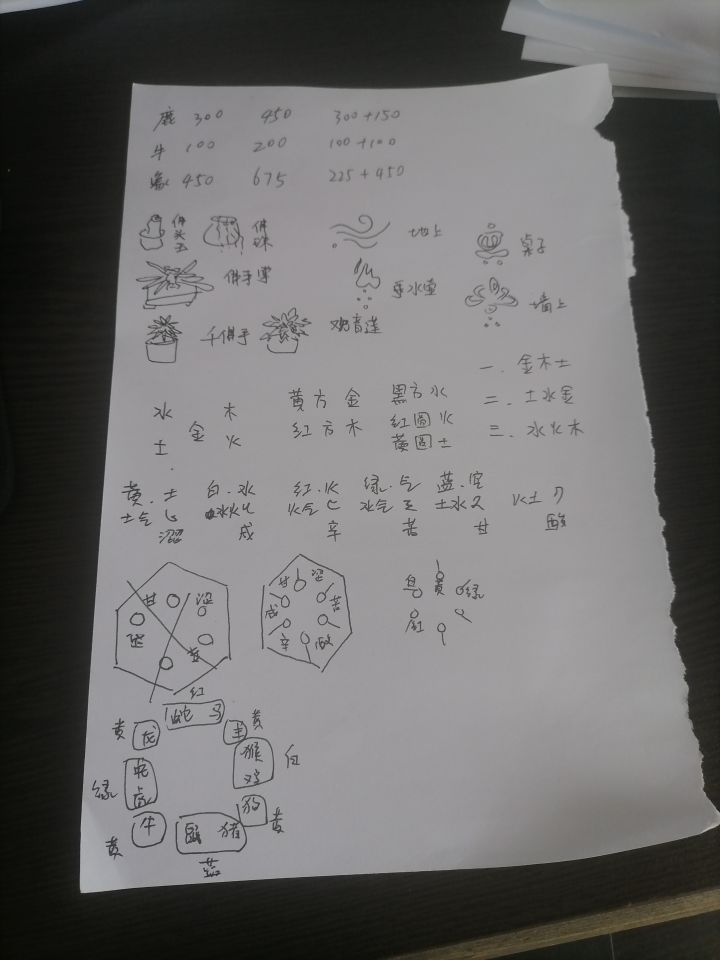 鹿 300 450 300+150
牛 100 200 100+100
象 450 675 225+450
佛头玉 佛珠 地上 桌子
佛手掌 墙上
千佛手 观音莲
水 木 黄方 金 黑方 水 一. 金木土
金 红方 木 红圆 火 二. 土水金
土 火 黄圆 土 三. 水火木
黄.土 白.水 红.火 绿.气 蓝.空
土气 水火 火气 水气 土水 火土
涩 咸 辛 苦 甘 酸
甘 涩 甘 涩 白 黄 绿
咸 苦
辛 酸 红
红
黄 龙 蛇 马 羊 黄
绿 兔 虎 猴 鸡 白
黄 牛 鼠 猪 狗 黄
蓝